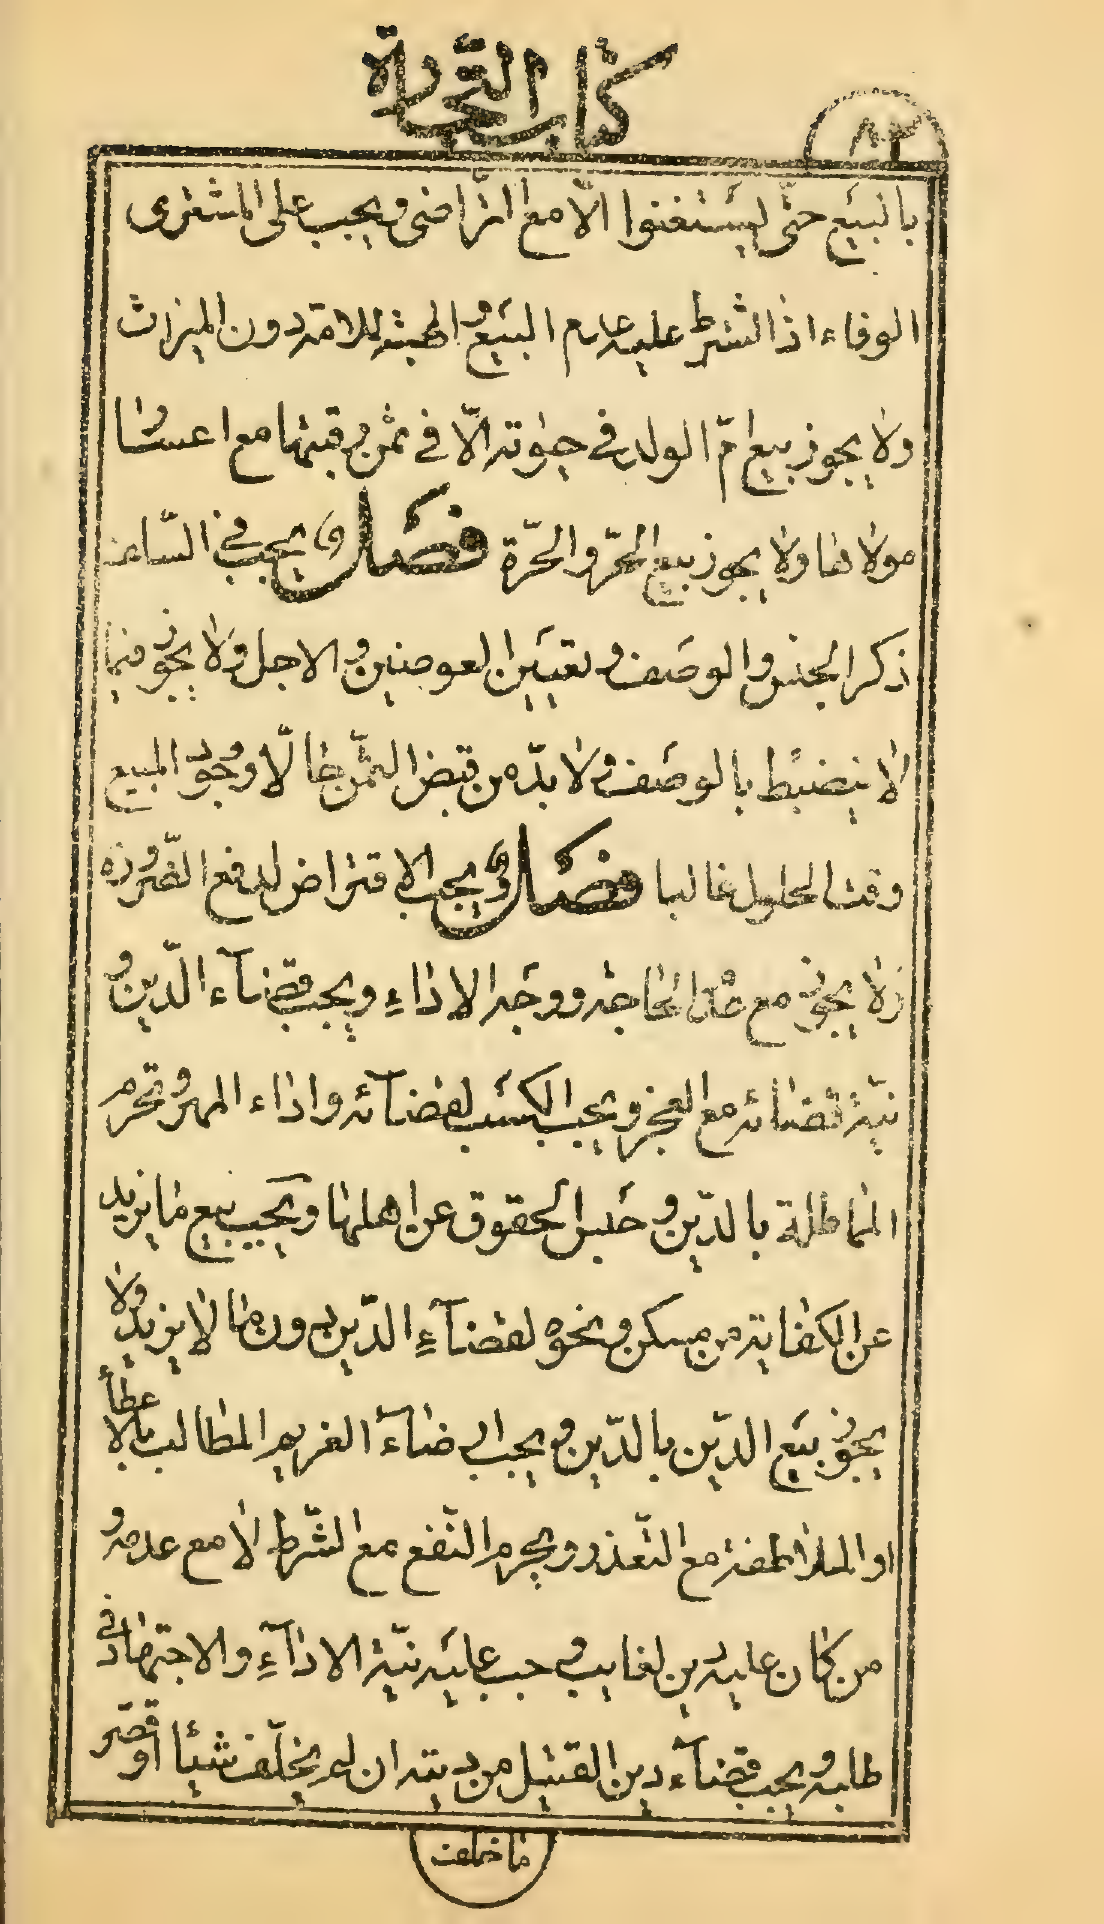 كتاب التجارة
٨٢
بالبيع حتّى يستغنوا الّا مع التراضى ويجب على المشترى
الوفاء اذا اشترط عليه عدم البيع و الهبة للامة دون الميراث
ولا يجوز بيع امّ الولد في حيٰوته الّا في ثمن رقبتها مع اعسار
مولاها ولا يجوز بيع الحرّ والحرّة فصل يجب في السّلم
ذكر الجنس والوصف و تعيين العوضين و الاجل ولا يجوز فيما
لا ينضبط بالوصف و لا بدّ من قبض الثّمن حالّا ووجود المبيع
وقت الحلول غالبا فصل يجب الاقتراض لدفع الضّرورة
ولا يجوز مع عدم الحاجة ووجه الاداءِ ويجب قضآء الدّين و
نيّة قضائه مع العجز و يجب الكسب لقضآئه واداء المهر و تحرم
المماطلة بالدّين و حبس الحقوق عن اهلها ويجب بيع ما يزيد
عن الكفاية من مسكن و نحوه لقضآءِ الدّين دون ما لا يزيد ولا
يجوز بيع الدّين بالدّين و يجب ارضآء الغريم المطالب بالاعطاء
او الملاطفة مع التّعذر ويحرم النّفع مع الشّرط لا مع عدمه و
من كان عليه دين لغايب وجب عليه نيّة الادآءِ والاجتهاد في
طلبه و يجب قضآء دين القتيل من ديته ان لم يخلّف شيئا او قصّر
ما خلف